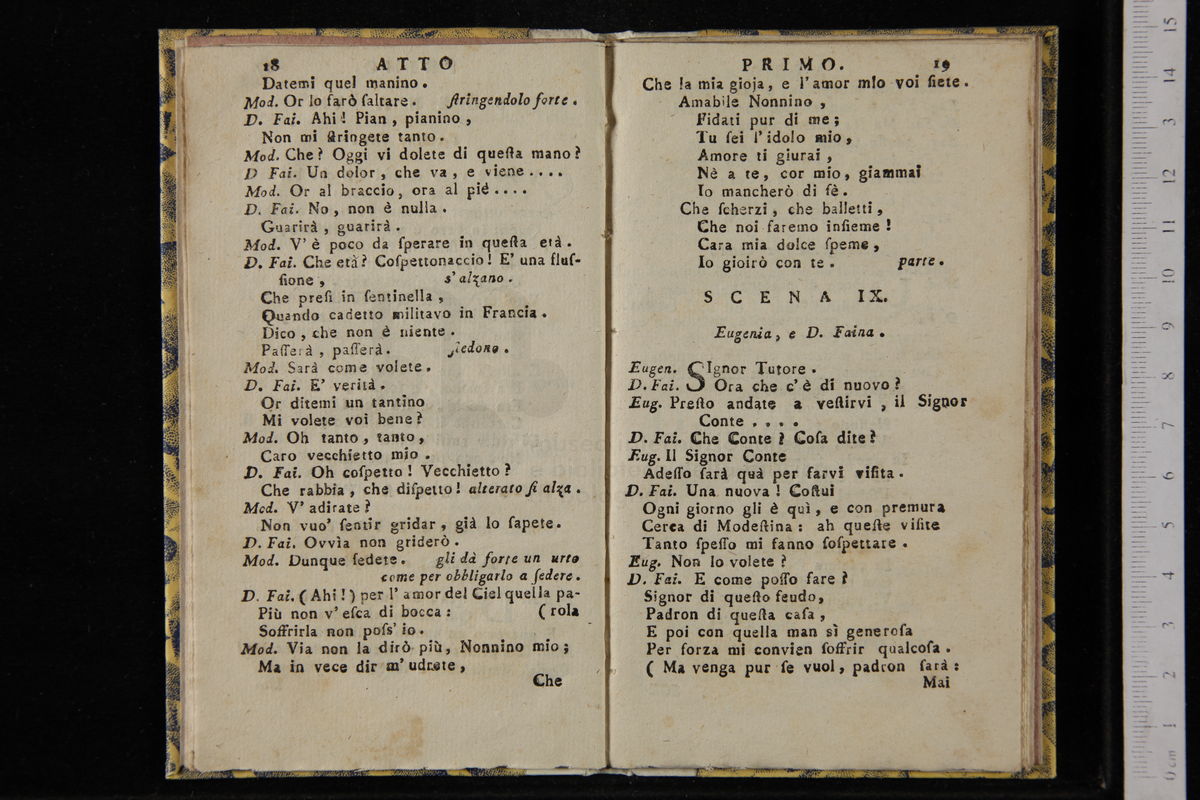 18 ATTO
Datemi quel manino.
Mod. Or lo farò ſaltare. ſtringendolo forte.
D. Fai. Ahi! Pian, pianino,
Non mi ſtringete tanto.
Mod. Che? Oggi vi dolete di queſta mano?
D Fai. Un dolor, che va, e viene....
Mod. Or al braccio, ora al piè....
D. Fai. No, non è nulla.
Guarirà, guarirà.
Mod. V' è poco da ſperare in queſta età.
D. Fai. Che età? Coſpettonaccio! E' una fluſ-
ſione, s' alzano.
Che preſi in ſentinella,
Quando cadetto militavo in Francia.
Dico, che non è niente.
Paſſerà, paſſerà. ſiedono.
Mod. Sarà come volete.
D. Fai. E' verità.
Or ditemi un tantino
Mi volete voi bene?
Mod. Oh tanto, tanto,
Caro vecchietto mio.
D. Fai. Oh coſpetto! Vecchietto?
Che rabbia, che diſpetto! alterato ſi alza.
Mod. V' adirate?
Non vuo' ſentir gridar, già lo ſapete.
D. Fai. Ovvìa non griderò.
Mod. Dunque ſedete. gli dà forte un urto
come per obbligarlo a ſedere.
D. Fai. (Ahi!) per l' amor del Ciel quella pa-
Più non v' eſca di bocca: (rola
Soffrirla non poſs' io.
Mod. Via non la dirò più, Nonnino mio;
Ma in vece dir m' udrete,
Che
PRIMO. 19
Che la mia gioja, e l' amor mIo voi ſiete.
Amabile Nonnino,
Fidati pur di me;
Tu ſei l' idolo mio,
Amore ti giurai,
Nè a te, cor mio, giammai
Io mancherò di fè.
Che ſcherzi, che balletti,
Che noi faremo inſieme!
Cara mia dolce ſpeme,
Io gioirò con te. parte.
SCENA IX.
Eugenia, e D. Faina.
Eugen. SIgnor Tutore.
D. Fai. Ora che c' è di nuovo?
Eug. Preſto andate a veſtirvi, il Signor
Conte....
D. Fai. Che Conte? Coſa dite?
Eug. Il Signor Conte
Adeſſo ſarà quà per farvi viſita.
D. Fai. Una nuova! Coſtui
Ogni giorno gli è quì, e con premura
Cerca di Modeſtina: ah queſte viſite
Tanto ſpeſſo mi fanno ſoſpettare.
Eug. Non lo volete?
D. Fai. E come poſſo fare?
Signor di queſto feudo,
Padron di queſta caſa,
E poi con quella man sì generoſa
Per forza mi convien ſoffrir qualcoſa.
( Ma venga pur ſe vuol, padron ſarà:
Mai